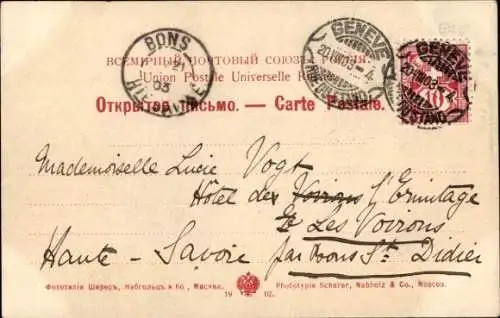 BONS
21
03
GENEVE
20.VIII.03-4
GENEVE
20.VIII.03-4
ВСЕМІРНЫЙ ПОЧТОВЫЙ СОЮЗЪ
Union Postale Universelle
Открытое письмо. — Carte Postale.
Mademoiselle Lucie Vogt
Hôtel des Voirons l'Ermitage
Les Voirons
Haute-Savoie par Bons St. Didier
Фототипія Шереръ, Набгольцъ и Ко, Москва.
Phototypie Scherer, Nabholz & Co., Moscou.
19 02.